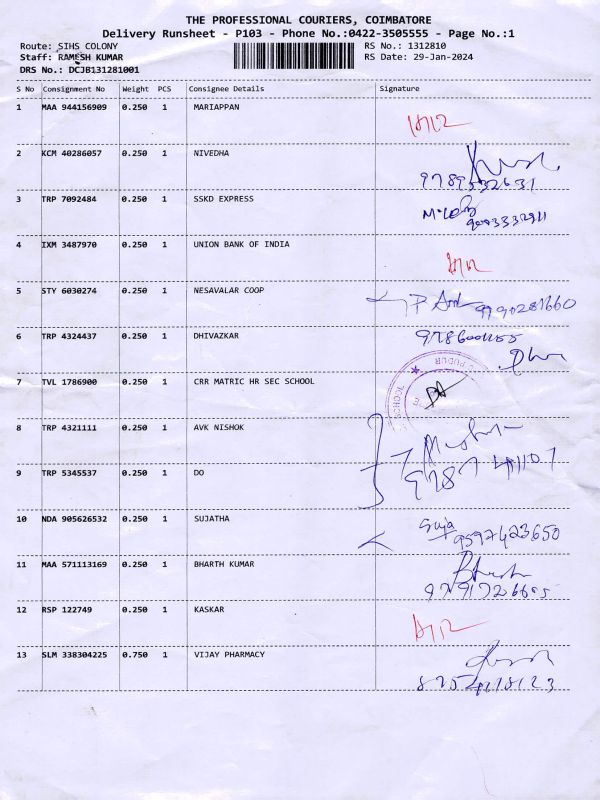 THE PROFESSIONAL COURIERS, COIMBATORE
Delivery Runsheet - P103 - Phone No.:0422-3505555 - Page No.:1
Route: SIHS COLONY RS No.: 1312810
Staff: RAMESH KUMAR RS Date: 29-Jan-2024
DRS No.: DCJB131281001
S No Consignment No Weight PCS Consignee Details Signature
1 MAA 944156909 0.250 1 MARIAPPAN
2 KCM 40286057 0.250 1 NIVEDHA
9789532631
3 TRP 7092484 0.250 1 SSKD EXPRESS
4 IXM 3487970 0.250 1 UNION BANK OF INDIA
5 STY 6030274 0.250 1 NESAVALAR COOP
9790281660
6 TRP 4324437 0.250 1 DHIVAZKAR
7 TVL 1786900 0.250 1 CRR MATRIC HR SEC SCHOOL
8 TRP 4321111 0.250 1 AVK NISHOK
9 TRP 5345537 0.250 1 DO
10 NDA 905626532 0.250 1 SUJATHA Suja
9597423650
11 MAA 571113169 0.250 1 BHARTH KUMAR
12 RSP 122749 0.250 1 KASKAR
13 SLM 338304225 0.750 1 VIJAY PHARMACY